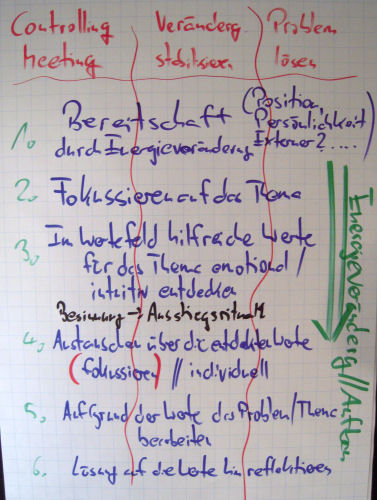 Controlling Meeting
Veränderg stabilisieren
Problem lösen
1. Bereitschaft (Position, Persönlichkeit
durch Energieveränderung Externer? .....)
2. Fokussieren auf das Thema
3. Im Wertefeld hilfreiche Werte
für das Thema emotional /
intuitiv entdecken
Besinnung → Ausstiegsritual
4. Austauschen über die entdeckten Werte
(fokussieren) // individuell
5. Aufgrund der Werte das Problem/Thema
bearbeiten
6. Lösung auf die Werte hin reflektieren
Energieveränderg // Aufbau